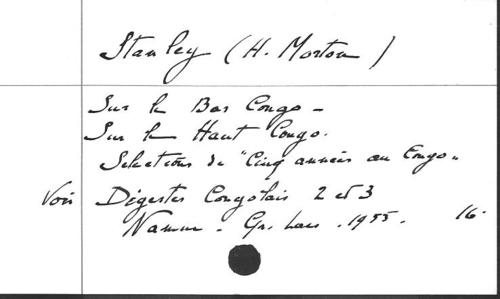 Stanley (H. Morton)
Sur le Bas Congo -
Sur le Haut Congo.
Sélections de "Cinq années au Congo"
Voir Digestes Congolais 2 et 3
Namur - Gr. Lacs . 1955. 16.